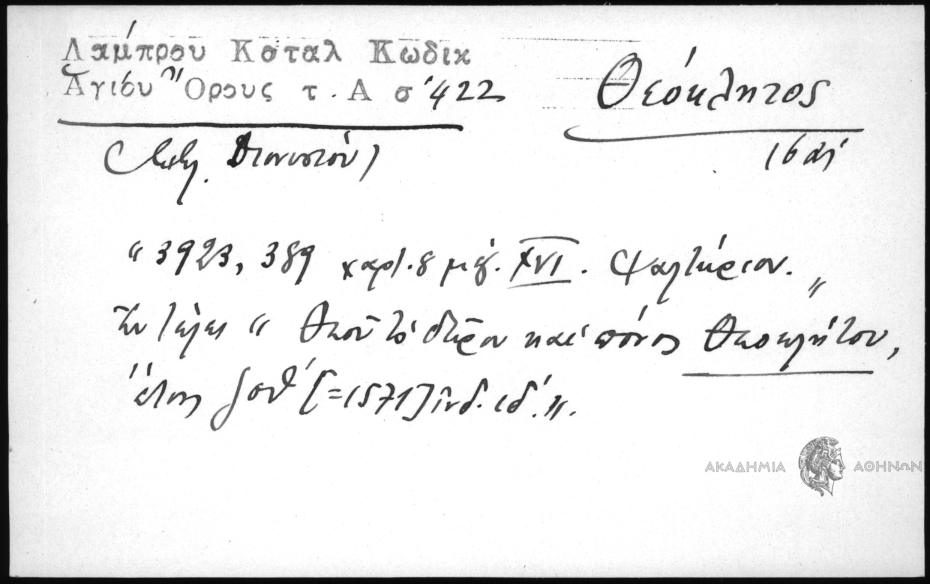 Λαμπρου Καταλ Κωδικ
Αγίου Ὄρους τ. Α σ 422
Θεόκλητος
16 αἰ
Μον. Διονυσίου
"3923, 389 χαρτ. 8 μιφ. XVI. Ψαλτήριον."
Ἐν τέλει "Θεοῦ τὸ δῶρον καὶ πόνος Θεοκλήτου,
ἔτους ζοθ´ [=1571] ἰνδ. ιδ´."
ΑΚΑΔΗΜΙΑ ΑΘΗΝΩΝ